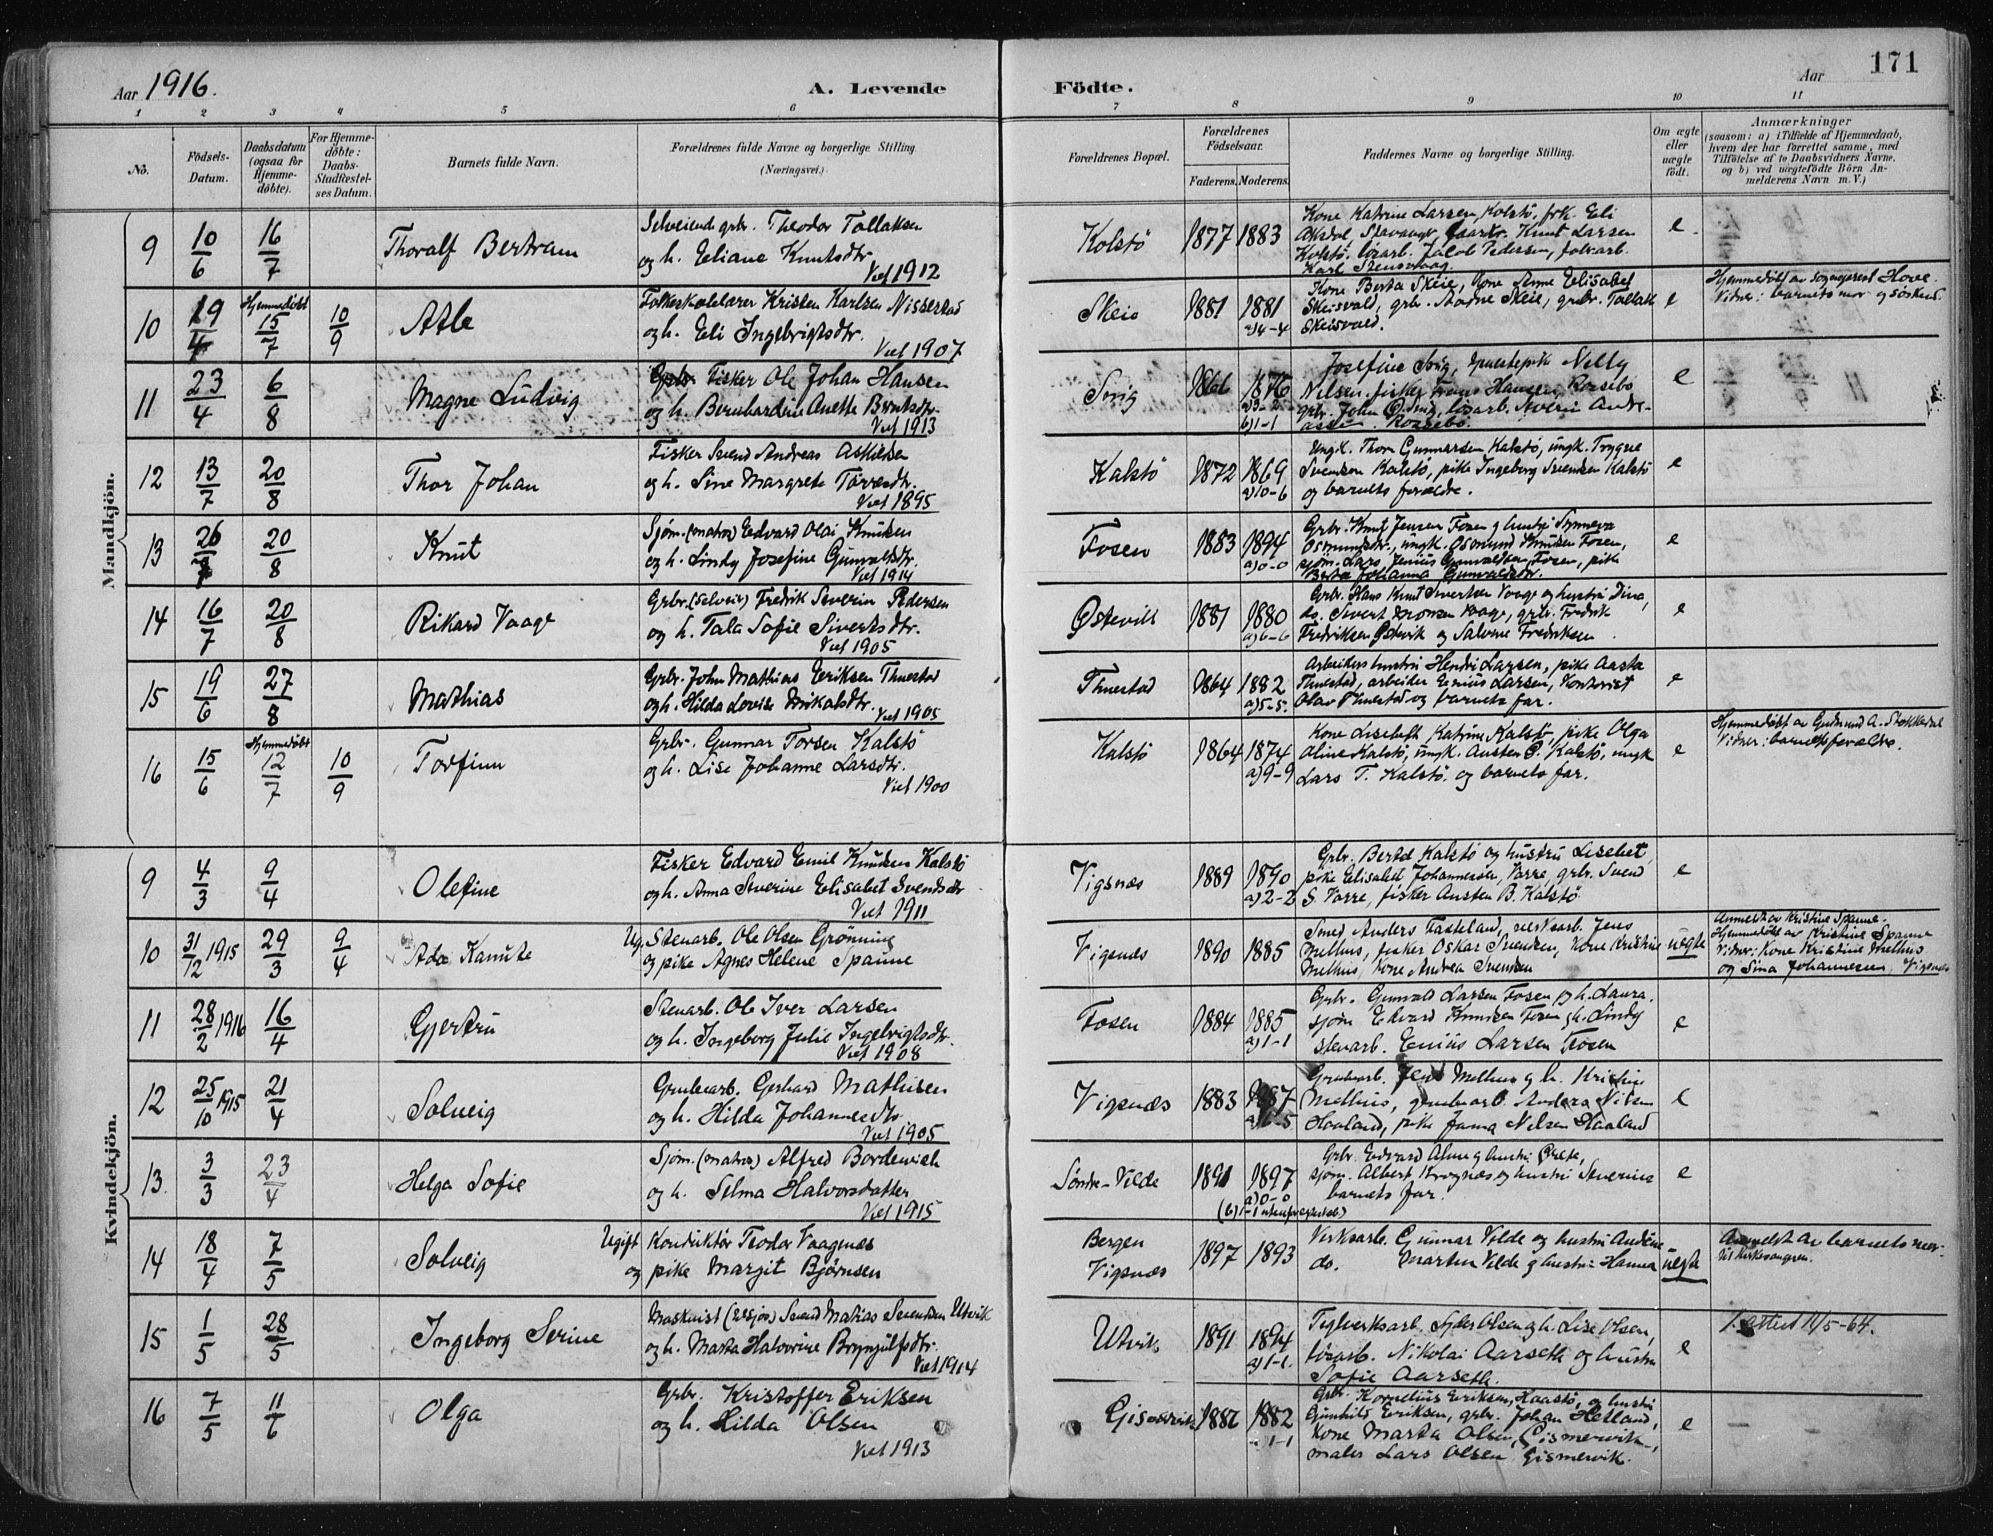 Aar 1916.
A. Levende Födte.
Aar
171
1 2 3 4 5 6 7 8 9 10 11
No.
Födsels-Datum.
Daabsdatum (ogsaa for Hjemme-döbte).
For Hjemme-döbte: Daabs-Stadfæstelses Datum.
Barnets fulde Navn.
Forældrenes fulde Navne og borgerlige Stilling.
(Næringsvei.)
Forældrenes Bopæl.
Forældrenes Födselsaar.
Faderens. Moderens.
Faddernes Navne og borgerlige Stilling.
Om ægte eller uægte födt.
Anmærkninger
(saasom: a) i Tilfælde af Hjemmedaab, hvem der har forrettet samme, med Tilföielse af to Daabsvidners Navne, og b) ved uægtefödte Börn Anmelderens Navn m. V.)
Mandkjön.
9 10/6 16/7 Thoralf Bertram
Selveiende grbr. Theodor Tollaksen
og h. Eliane Knutsdtr.
Viet 1912
Kolstö 1877 1883
Kone Katrine Larsen, Kolstö, frk. Eli
Aksdal Stavanger, Knut Larsen
Kolstö, lösarb. Jakob Pedersen,
Karl Stensvaag.
e.
10 19/4 Hjemmedöbt 15/7 10/9 Atle
Folkeskolelærer Kristen Karlsen Nisserstad
og h. Eli Ingebrigtsdtr.
Viet 1907
Skeie 1881 1881
a) 4-4
Kone Berta Skeie, Kone Anne Elisabet
Skeisvold, grbr. Skeie, grbr. Tollak
Skeisvold.
e
Hjemmedöbt av sogneprest Hove.
Vidner: barnets mor og söskend
11 23/4 6/8 Magne Ludvig
Fisker Ole Johan Hansen
og h. Bernhardine Anette Berntsdtr.
Viet 1913
1866 1876
b) 1-1
Josefine Nelly
Nilsen, fisker Hansen, Korsebö
grbr. Johan lösarb. Andre-
assen. Korsebö.
e
12 13/7 20/8 Thor Johan
Fisker Svend Andreas Askildsen
og h. Sine Margrete
Viet 1895
Kalstö 1872 1869
a) 10-6
Ungk. Thor Gunnarsen Kalstö, ungk. Trygve
Svendsen Kalstö, pike Ingeborg Svendsen Kalstö
og barnets forældre.
e
13 26/7 20/8 Knut
Sjöm. (matros) Edvard Olai Knutsen
og h. Lindy Josefine Gunvaldsdtr.
Viet 1914
Fosen 1883 1894
a) 0-0
Grbr. Knut Jensen Fosen og hustru Synneva
Osmundsdtr., ungk. Osmund Knutsen Fosen,
sjöm. Lars Jenius Gunvaldsen Fosen, pike
Berta Johanna Gunvaldsdtr.
e
14 16/7 20/8 Rikard Vaage
Grbr. (selveier) Fredrik Severin Pedersen
og h. Tala Sofie Sivertsdtr.
Viet 1905
Östevik 1881 1880
a) 6-6
Grbr. Hans Knut Sivertsen Vaage og hustru Dina,
do. Sivert Vaage, grbr. Fredrik
Fredriksen Östevik og Salome Fredriksen.
e
15 19/6 27/8 Mathias
Grbr. John Mathias Eriksen Thuestad
og h. Hilda Lovise Mikalsdtr.
Viet 1905
Thuestad 1864 1882
a) 5-5.
Arbeiders hustru Larsen, pike Aasta
Thuestad, arbeider Enius Larsen, Kontorist
Olav Thuestad og barnets far.
e
16 15/6 Hjemmedöbt 12/7 10/9 Torfinn
Grbr. Gunnar Torsen Kalstö
og h. Lise Johanne Larsdtr.
Viet 1900
Kalstö 1864 1874
a) 9-9
Kone Liseleth Katrine Kalstö, pike Olga
Oline Kalstö, ungk. Austen Kalstö, ungk
Lars T. Kalstö og barnets far.
e
Hjemmedöbt av Gudmund A. Stokkedal
Vidner: barnets forældre.
Kvindekjön.
9 4/3 9/4 Olefine
Fisker Edvard Emil Knudsen Kalstö
og h. Anna Severine Elisabet Svendsdtr
Viet 1911
Vigsnæs 1889 1890
a) 2-2
Grbr. Bertel Kalstö og hustru Liselet,
pike Elisabet Johannesen, Varre, grbr. Svend
S. Varre, fisker Austen B. Kalstö
e
10 31/12 1915 29/3 9/4 Ada Kanute
Ug. Stenarb. Ole Olsen Grönning
og pike Agnes Helene Spanne
Vigsnæs 1890 1885
Smed Anders Fasteland, verksarb. Jens
Melhus, fisker Oskar Svendsen, Kone Kristine
Melhus, Kone Andrea Svendsen
uegte
Anmeldt av Kristine Spanne.
Hjemmedöbt av Kristine Spanne
Vidner: Kone Kristine Melhus
og Sina Johannesen, Vigsnæs
11 28/2 1916 16/4 Gjertru
Stenarb. Ole Iver Larsen
og h. Ingeborg Julie Ingebrigtsdtr.
Viet 1908
Fosen 1884 1885
a) 1-1
Grbr. Gunvald Larsen Fosen og h. Laura.
sjöm Edvard Knudsen Fosen og h. Lindy
stenarb. Enius Larsen Fosen
e
12 25/10 1915 21/4 Solveig
Grubearb. Gerhard Mathisen
og h. Hilda Johannesdtr.
Viet 1905
Vigsnæs 1883 1887
Grubearb. Jens Melhus og h. Kristine
Melhus, grubearb. Anders Nilsen
Haaland, pike Jenna Nilsen Haaland
e
13 3/3 23/4 Helga Sofie
Sjöm. (matros) Alfred Bordewich
og h. Selma Halvorsdatter
Viet 1915
Söndre-Vilde 1891 1897
a) 0-0
Grbr. Edvard og hustru Grete,
sjöm. Albert Krognæs og hustru Severine
barnets far.
e
14 18/4 7/5 Solveig
Ugift Konduktör Teodor Vaagenæs
og pike Margit Björnsen
Bergen
Vigsnæs 1897 1893
Verksarb. Gunnar Vilde og hustru Andine
do. Martin Vilde og hustru Hanna
uegte
Anmeldt av barnets mor
til Kirkesangeren.
15 1/5 28/5 Ingeborg Serine
Maskinist (tilsjös) Svend Matias Svendsen Utvik
og h. Marta Halvorine Brynjulfsdtr.
Viet 1914
Utvik 1891 1894
a) 1-1.
Teglverksarb. Olsen og h. Lise Olsen,
lösarb. Nikolai Aarseth og hustru
Sofie Aarseth.
e
11/5-64.
16 7/5 11/6 Olga
Grbr. Kristoffer Eriksen
og h. Hilda Olsen
Viet 1913
Gismervik 1882
1-1
Grbr. Kornelius Eriksen, Haastö, og hustru
Gunhild Eriksen, grbr. Johan Hetland,
Kone Marta Olsen, Gismervik,
maler Lars Olsen Gismervik.
e